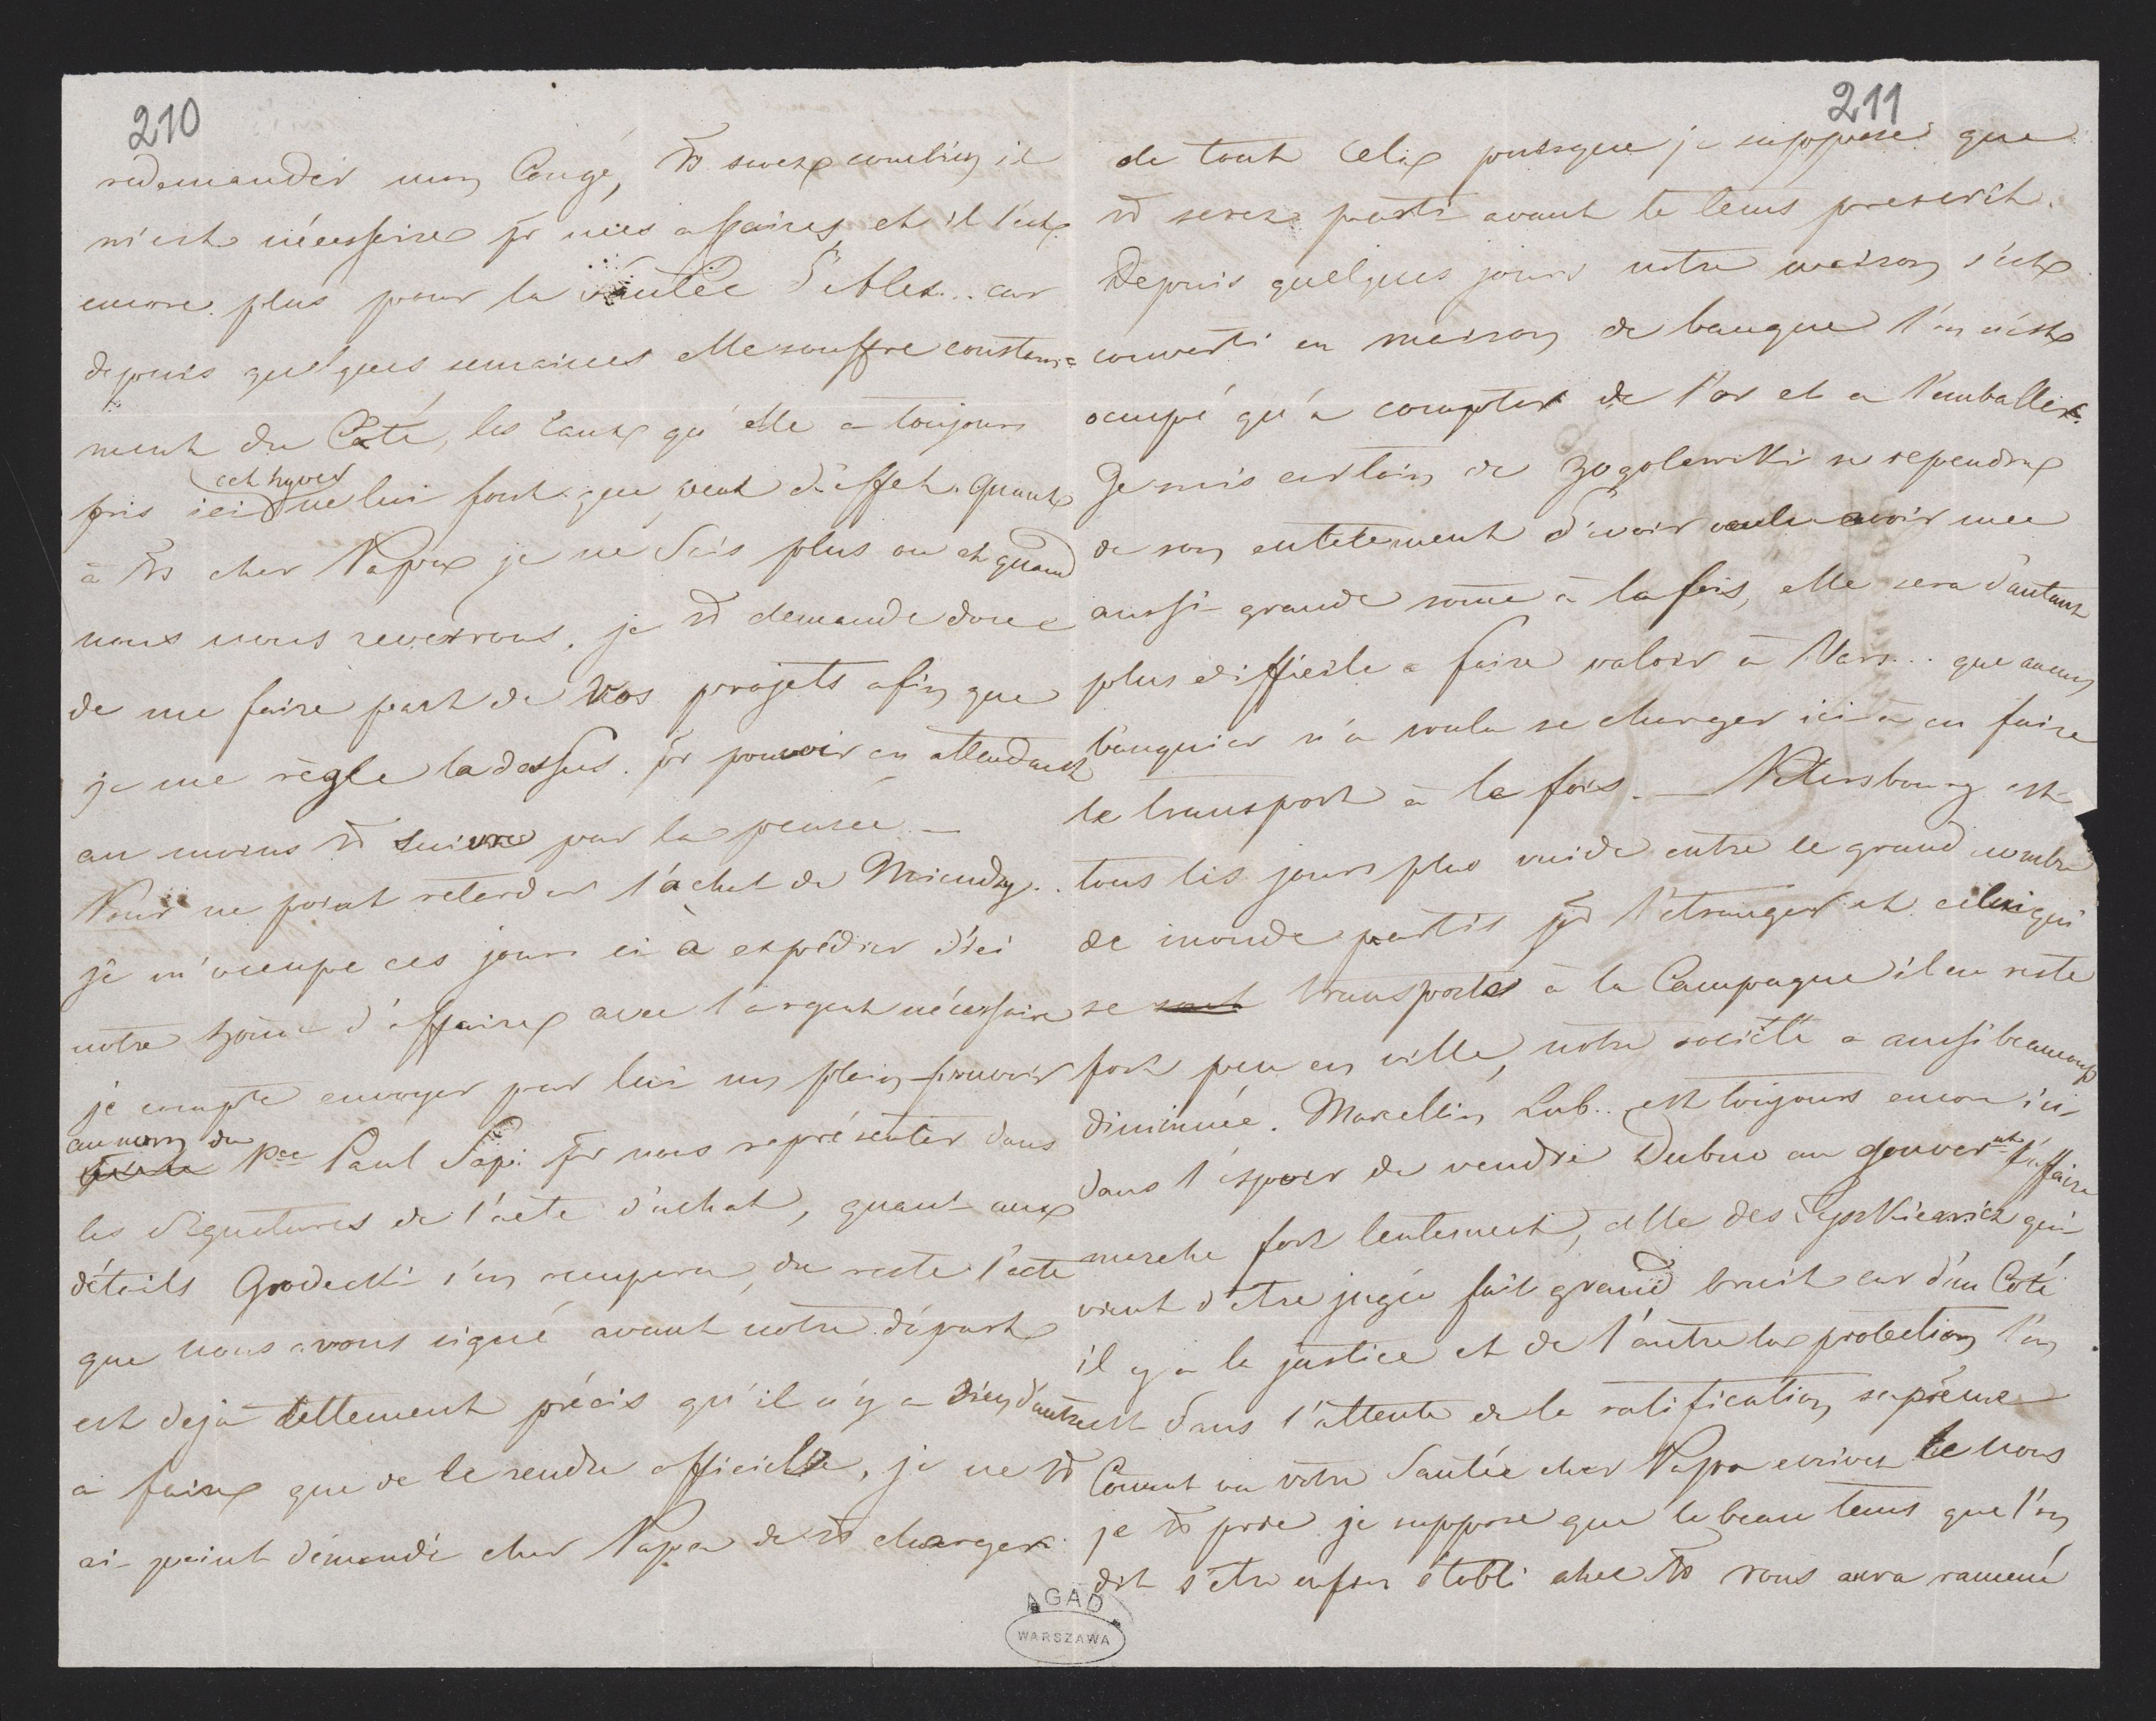 210
redemander mon Congé, vs savez combien il
m'est nécessaire pr mes affaires et il l'est
encore plus pour la santée d'Alex.. car
depuis quelques semaines elle souffre constam=
ment du Coté, les Eaux qu'elle a toujours
cet hyver
pris ici ne lui font que peut d'effet. Quant
à vs cher Papa je ne sais plus ou et quand
nous nous reverrons. je vs demande donc
de me faire part de vos projets afin que
je me règle la dessus. pr pouvoir en attendant
au moins vs suivre par la pensée —
Pour ne point retarder l'achat de Miendzy..
je m'occupe ces jours ci à expédier d'ici
notre home d'affaires avec l'argent nécessaire
je compte envoyer par lui un plein-pouvoir
au nom du
Pce Paul Sapi: pr nous représenter dans
les signatures de l'acte d'achat, quant aux
détails Grodecki s'en occupera, du reste l'acte
que nous avons signé avant notre départ
est deja tellement précis qu'il n'y a rien d'autre
a faire que de le rendre officielle, je ne vs
ai point demandé cher Papa de vs charger
211
de tout cela puisque je suppose que
vs serez parti avant le tems prescrit.
Depuis quelques jours notre maison s'est
converti en maison de banque l'on n'est
occupé qu'a compter de l'or et a l'emballer.
Je suis certain de Zogolewski se rependra
de son entetement d'avoir voulu avoir une
aussi grande some à la fois, elle sera d'autant
plus difficile a faire valoir à Vars... que aucun
banquier n'a voulu se charger ici à en faire
le transport à la fois. — Petersbourg est
tous les jours plus vuide entre le grand nombre
de monde partis pr l'etranger et celui qui
se sont transportés à la Campagne il en reste
fort peu en ville, notre société a aussi beaucoup
diminuée. Marcellin Lub.. est toujours encore ici
dans l'espoir de vendre Dubno au gouvernt l'affaire
marche fort lentement, celle des qui
vient d'etre jugée fait grand bruit car d'un Coté
il y a la justice et de l'autre la protection l'on
est dans l'attente de la ratification suprême
Coment va votre Santée cher Papa ecrivez le nous
je vs prie je suppose que le beau tems que l'on
dit s'etre enfin établi chez vs vous aura ramené
AGAD
WARSZAWA